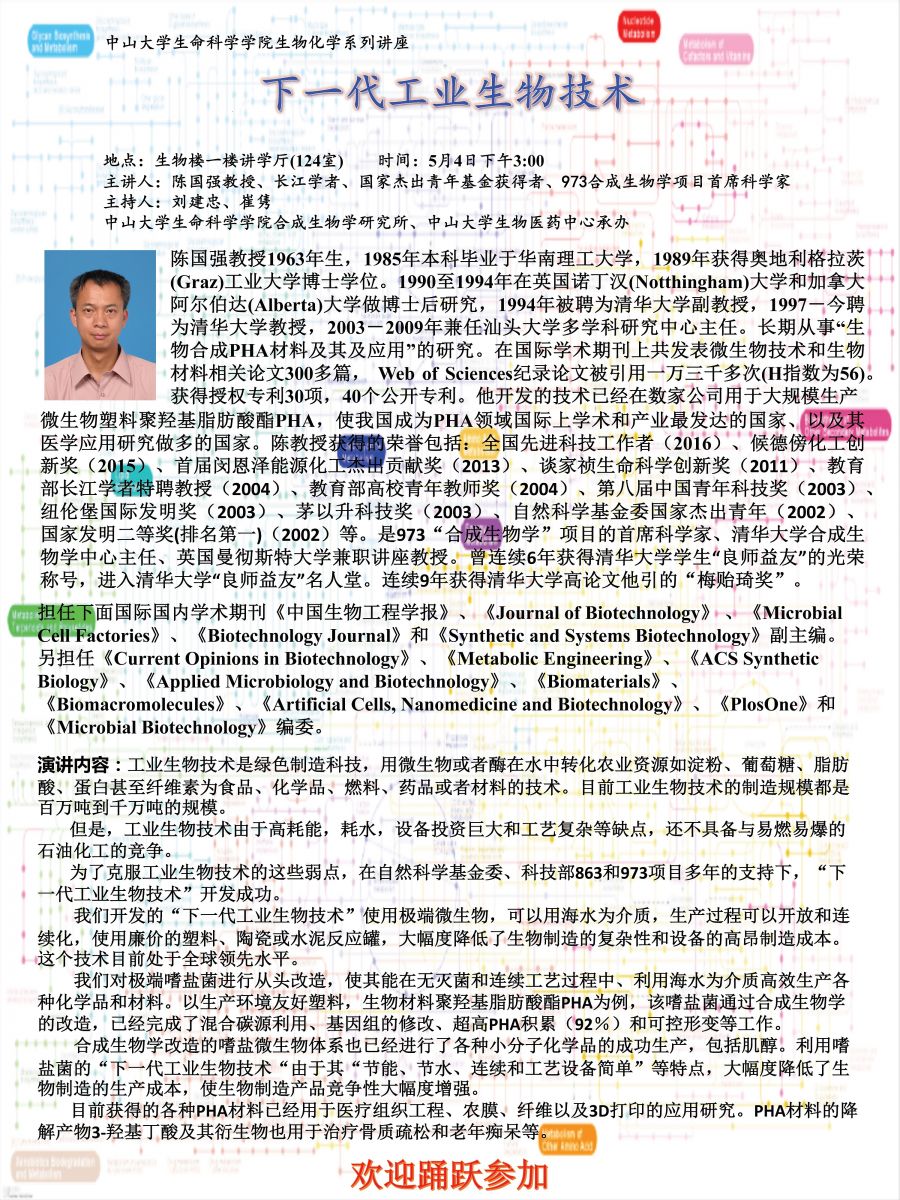 Glycan Biosynthesis
and Metabolism
中山大学生命科学学院生物化学系列讲座
Nucleotide
Metabolism
Metabolism of
Cofactors and Vitamins
下一代工业生物技术
地点：生物楼一楼讲学厅(124室) 时间：5月4日下午3:00
主讲人：陈国强教授、长江学者、国家杰出青年基金获得者、973合成生物学项目首席科学家
主持人：刘建忠、崔隽
中山大学生命科学学院合成生物学研究所、中山大学生物医药中心承办
陈国强教授1963年生，1985年本科毕业于华南理工大学，1989年获得奥地利格拉茨
(Graz)工业大学博士学位。1990至1994年在英国诺丁汉(Notthingham)大学和加拿大
阿尔伯达(Alberta)大学做博士后研究，1994年被聘为清华大学副教授，1997－今聘
为清华大学教授，2003－2009年兼任汕头大学多学科研究中心主任。长期从事“生
物合成PHA材料及其及应用”的研究。在国际学术期刊上共发表微生物技术和生物
材料相关论文300多篇， Web of Sciences纪录论文被引用一万三千多次(H指数为56)。
获得授权专利30项，40个公开专利。他开发的技术已经在数家公司用于大规模生产
微生物塑料聚羟基脂肪酸酯PHA，使我国成为PHA领域国际上学术和产业最发达的国家、以及其
医学应用研究做多的国家。陈教授获得的荣誉包括：全国先进科技工作者（2016）、候德傍化工创
新奖（2015）、首届闵恩泽能源化工杰出贡献奖（2013）、谈家祯生命科学创新奖（2011）、教育
部长江学者特聘教授（2004）、教育部高校青年教师奖（2004）、第八届中国青年科技奖（2003）、
纽伦堡国际发明奖（2003）、茅以升科技奖（2003）、自然科学基金委国家杰出青年（2002）、
国家发明二等奖(排名第一)（2002）等。是973“合成生物学”项目的首席科学家、清华大学合成生
物学中心主任、英国曼彻斯特大学兼职讲座教授。曾连续6年获得清华大学学生“良师益友”的光荣
称号，进入清华大学“良师益友”名人堂。连续9年获得清华大学高论文他引的“梅贻琦奖”。
担任下面国际国内学术期刊《中国生物工程学报》、《Journal of Biotechnology》、《Microbial
Cell Factories》、《Biotechnology Journal》和《Synthetic and Systems Biotechnology》副主编。
另担任《Current Opinions in Biotechnology》、《Metabolic Engineering》、《ACS Synthetic
Biology》、《Applied Microbiology and Biotechnology》、《Biomaterials》、
《Biomacromolecules》、《Artificial Cells, Nanomedicine and Biotechnology》、《PlosOne》和
《Microbial Biotechnology》编委。
演讲内容：工业生物技术是绿色制造科技，用微生物或者酶在水中转化农业资源如淀粉、葡萄糖、脂肪
酸、蛋白甚至纤维素为食品、化学品、燃料、药品或者材料的技术。目前工业生物技术的制造规模都是
百万吨到千万吨的规模。
但是，工业生物技术由于高耗能，耗水，设备投资巨大和工艺复杂等缺点，还不具备与易燃易爆的
石油化工的竞争。
为了克服工业生物技术的这些弱点，在自然科学基金委、科技部863和973项目多年的支持下，“下
一代工业生物技术”开发成功。
我们开发的“下一代工业生物技术”使用极端微生物，可以用海水为介质，生产过程可以开放和连
续化，使用廉价的塑料、陶瓷或水泥反应罐，大幅度降低了生物制造的复杂性和设备的高昂制造成本。
这个技术目前处于全球领先水平。
我们对极端嗜盐菌进行从头改造，使其能在无灭菌和连续工艺过程中、利用海水为介质高效生产各
种化学品和材料。以生产环境友好塑料，生物材料聚羟基脂肪酸酯PHA为例，该嗜盐菌通过合成生物学
的改造，已经完成了混合碳源利用、基因组的修改、超高PHA积累（92%）和可控形变等工作。
合成生物学改造的嗜盐微生物体系也已经进行了各种小分子化学品的成功生产，包括肌醇。利用嗜
盐菌的“下一代工业生物技术“由于其“节能、节水、连续和工艺设备简单”等特点，大幅度降低了生
物制造的生产成本，使生物制造产品竞争性大幅度增强。
目前获得的各种PHA材料已经用于医疗组织工程、农膜、纤维以及3D打印的应用研究。PHA材料的降
解产物3-羟基丁酸及其衍生物也用于治疗骨质疏松和老年痴呆等。
Metabolism of
Other Amino Acid
Xenobiotics Biodegradation
and Metabolism
欢迎踊跃参加